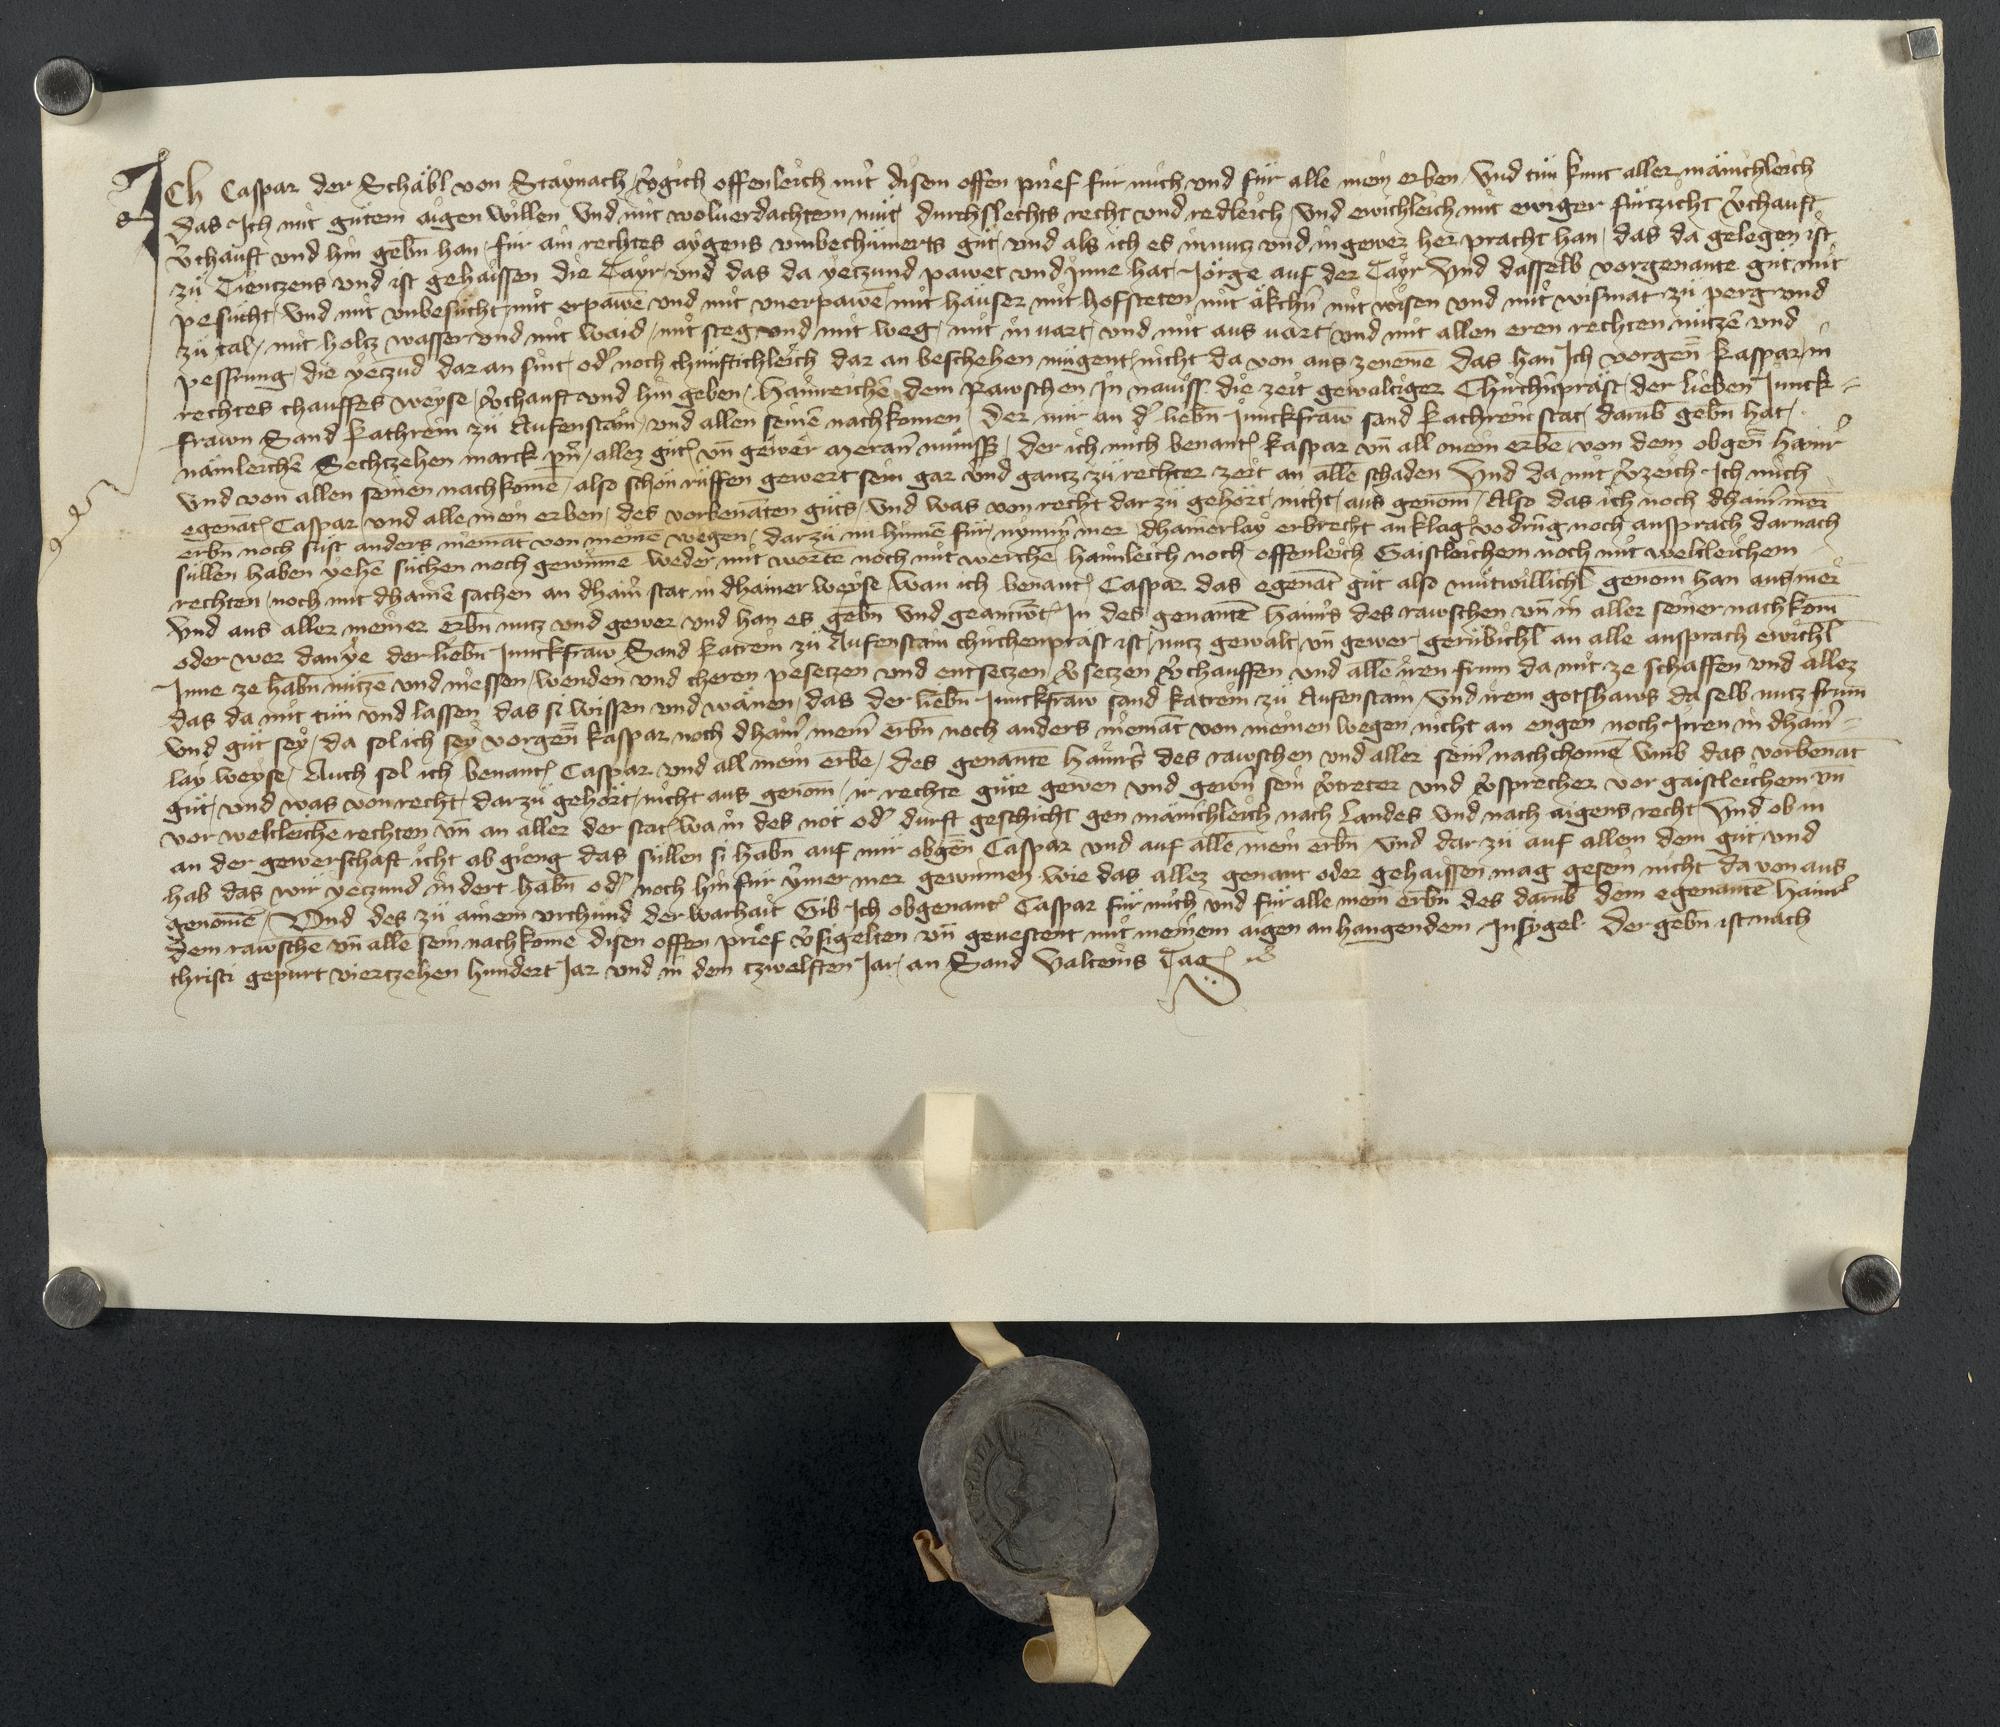 Ich Caspar der Schäbl von Staynach v̓gich offenleich mit disem offen prief für mich vnd für alle mein erben Vnd tün kunt aller mänichleich
das Ich mit gütem aigen willen Vnd mit woluerdachtem müt durchslechts recht vnd redleich Vnd ewichleich mit ewiger fürtzicht v̓chauft
v̓chauft vnd hin gebn̄ han für ain rechtes aygens vmbechümerts güt vnd als ich es in nutz vnd in gewer her pracht han das da gelegen ist
zü Tientzens vnd ist gehaissen die Täyr vnd das da yetzund pawet vnd Inne hat Jörge auf der Täyr Vnd dasselb vorgenante güt mit
pesücht Vnd mit vnbesücht mit erpawē vnd mit vnerpawē mit häuser mit hofsteten mit äkchn̄ mit wisen vnd mit wismat zü perg vnd
zü tal mit holtz wasser vnd mit waid mit steg vnd mit weg mit in uart vnd mit aus uart vnd mit allen eren rechten nützē vnd
pessrung die yetzūd dar an sint od̓ noch chünftichleich dar an beschehen mügent nicht da von aus zenemē das han Ich vorgen̄ Kaspar in
rechtes chauffes weyse v̓chauft vnd hin geben Hainreichē dem Rawschen In nauiss die zeit gewaltiger Chirchprȁst der lieben Junck=
frawn Sand Kathrein zü Aufenstain vnd allen seinē nachkomen Der mir an d̓ liebn̄ Junckfraw̄ sand Kathrein stat darūb gebn̄ hat
nämleichē Sechtzehen marck pn̄ allez güt̓ vn̄ gewer̓ meran̓ müniss der ich mich benant̓ Kaspar vn̄ all mein erbē von dem obgen̄ Hainr̓
Vnd von allen seinen nachkomē also schon rüffen gewert sein gar vnd gantz zü rechter zeit an allē schaden Vnd da mit v̓zeich Ich mich
egenāt̓ Caspar vnd alle mein erben des vorbenāten güts Vnd was von recht dar zü gehört nicht aus genom̄ Also das ich noch dhain̓ mer̓
erbn̄ noch süst anders niemāt von meinē wegen darzü nu hinnē für nȳmm̓ mer dhainerlay erbrecht anklag vodrūg noch ansprach darnach
süllen haben yehē süchen noch gewinnē weder mit wortē noch mit werchē hainleich noch offenleich Gaistleichem noch mit weltleichem
rechten noch mit dhainē sachen an dhain̓ stat in dhainer weyse Wan ich benant̓ Caspar das egenāt güt also mütwillichl̄ genom̄ han aus mein̓
Vnd aus aller meiner erbn̄ nutz vnd gewer vnd han es gebn̄ Vnd geantwōt̓ In des genantē Hainr̓s des rawschen vn̄ in aller seiner nachkom̄
oder wer dan ye der liebn̄ Junckfraw Sand Katrein zü Aufenstain chirchenprȁst ist nutz gewalt vn̄ gewer gerübichl̄ an alle ansprach ewichl̄
Inne ze habn̄ nützē vnd niessen wenden vnd cheren pesetzen vnd entsetzen v̓setzen v̓chauffen vnd allē iren frum da mit ze schaffen vnd allez
das da mit tün vnd lassen das si wissen vnd wänen das der liebn̄ Junckfraw sand Katrein zü Aufenstain Vnd irem gotshaws da selb nutz frum̄
vnd güt sey da sol ich sey vorgen̄ Kaspar noch dhain̓ mein̓ erbn̄ noch anders niemāt von meinen wegen nicht an engen noch Irren in dhain̓=
lay weyse Auch sol ich benant̓ Caspar vnd all mein erbē des genantē Hainr̓s des rawschen vnd aller sein̓ nachchomē Vmb das vorbenāt
güt vnd was von recht dar zü gehört nicht aus genom̄ ir rechte güte gewen vnd gewn̄ sein v̓treter vnd v̓sprecher vor gaistleichem vn̄
vor weltleichē rechten vn̄ an aller der stat wa in des nöt od̓ durft geschicht gen mänichleich nach Landes vnd nach aigens recht Vnd ob in
an der gewerschaft icht ab gieng das süllen si habn̄ auf mir obgen̄ Caspar vnd auf allē mein erbn̄ vnd dar zü auf allem dem güt vnd
hab das wir yetzund indert habn̄ od̓ noch hin für ȳmer mer gewinnen wie das allez genant oder gehaissen mag gesein nicht da von aus
genomē Vnd des zü ainem vrchünd der warhait Gib Ich obgenant̓ Caspar für mich vnd für alle mein erbn̄ des darūb dem egenantē Hainr̓
dem rawschē vn̄ allē sein nachkomē disen offen prief v̓sigelten vn̄ geuestent mit meinem aigen anhangendem Insygel Der gebn̄ ist nach
christi gepurt viertzehen hundert Jar vnd in dem tzwelften Jar an Sand Valteins Tag